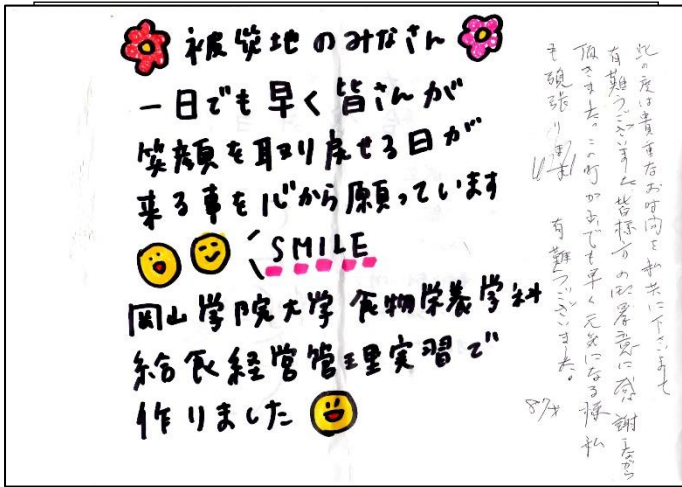 被災地のみなさん
一日でも早く皆さんが
笑顔を取り戻せる日が
来る事を心から願っています
SMILE
岡山学院大学 食物栄養学科
給食経営管理実習で
作りました
此の度は貴重なお時間を私共に下さいまして
有難うございました皆様方の御厚意に感謝しながら
頂きました。この町が少しでも早く元気になる様私
も頑張ります 有難うございました。